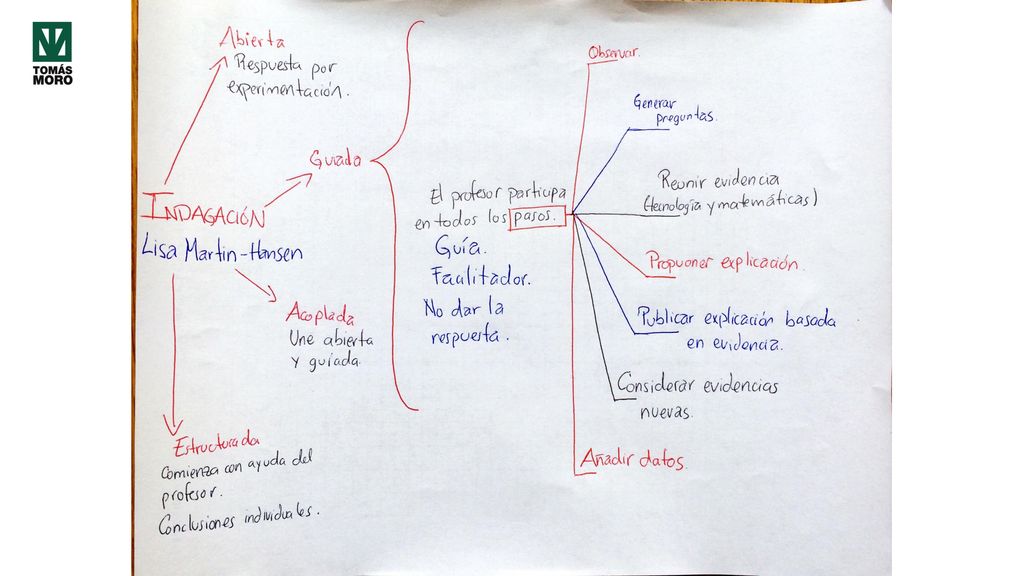 TOMÁS
MORO
Abierta
Respuesta por
experimentación.
Guiada
INDAGACIÓN
Lisa Martin-Hansen
Acoplada
Une abierta
y guiada.
Estructurada
Comienza con ayuda del
profesor.
Conclusiones individuales.
El profesor participa
en todos los pasos.
Guía.
Facilitador.
No dar la
respuesta.
Observar.
Generar
preguntas.
Reunir evidencia
(tecnología y matemáticas)
Propuoner explicación.
Publicar explicación basada
en evidencia.
Considerar evidencias
nuevas.
Añadir datos.